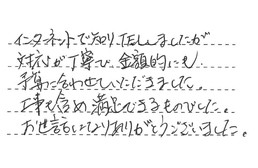 インターネットで知り、TELしましたが
対応が丁寧で、金額的にも
予算に合わせていただきました。
工事も含め、満足できるものでした。
お世話になりありがとうございました。